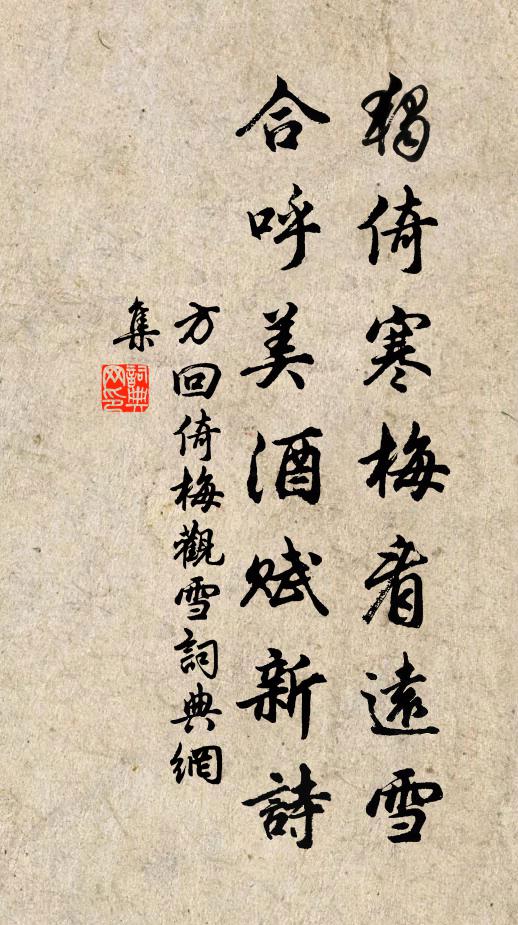 獨倚寒梅看遠雪
合呼美酒賦新詩
方回倚梅觀雪詞典網
集
詞典
网印